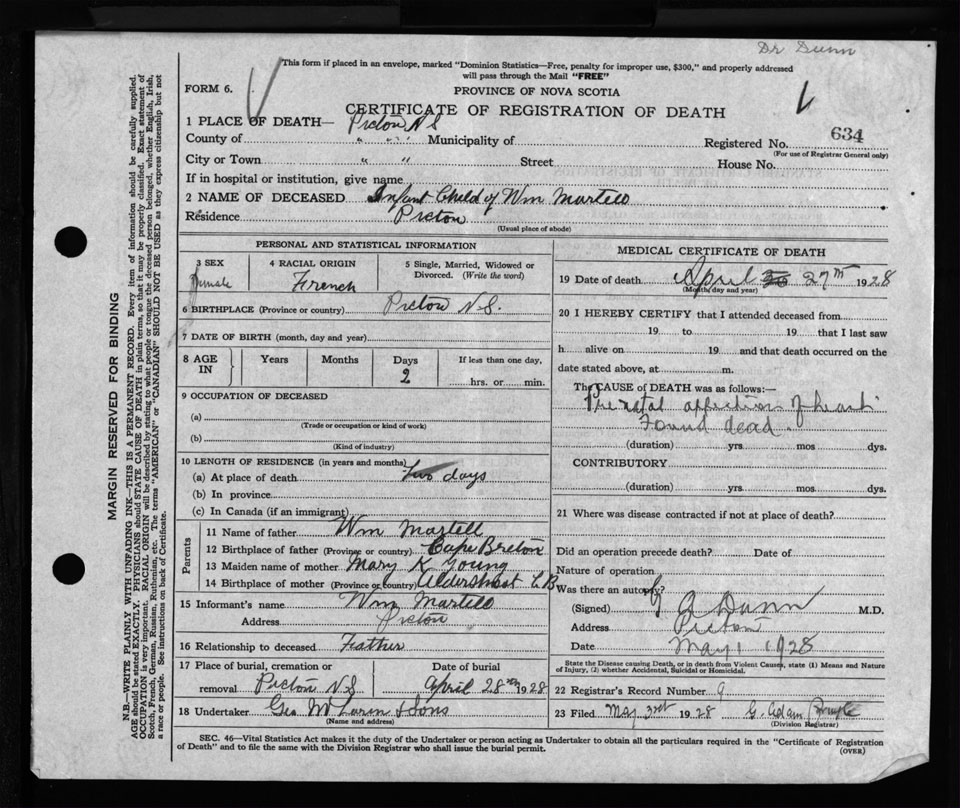 Dr Dunn
This form if placed in an envelope, marked "Dominion Statistics—Free, penalty for improper use, $300," and properly addressed
will pass through the Mail "FREE"
FORM 6.
PROVINCE OF NOVA SCOTIA
CERTIFICATE OF REGISTRATION OF DEATH
1 PLACE OF DEATH— Pictou N S
County of " " Municipality of Registered No. 634
(For use of Registrar General only)
City or Town " " Street House No.
If in hospital or institution, give name
2 NAME OF DECEASED Infant Child of Wm Martell
Residence Pictou
(Usual place of abode)
PERSONAL AND STATISTICAL INFORMATION
3 SEX 4 RACIAL ORIGIN 5 Single, Married, Widowed or
Divorced. (Write the word)
Female French
6 BIRTHPLACE (Province or country) Pictou N.S.
7 DATE OF BIRTH (month, day and year)
8 AGE IN Years Months Days If less than one day,
2 hrs. or min.
9 OCCUPATION OF DECEASED
(a)
(Trade or occupation or kind of work)
(b)
(Kind of industry)
10 LENGTH OF RESIDENCE (in years and months)
(a) At place of death two days
(b) In province
(c) In Canada (if an immigrant)
Parents
11 Name of father Wm Martell
12 Birthplace of father (Province or country) Cape Breton
13 Maiden name of mother Mary K Young
14 Birthplace of mother (Province or country) C B
15 Informant's name Wm Martell
Address Pictou
16 Relationship to deceased Father
17 Place of burial, cremation or Date of burial
removal Pictou N S April 28th 1928
18 Undertaker Geo & Sons
(Name and address)
MEDICAL CERTIFICATE OF DEATH
19 Date of death April 27th 1928
(Month, day and year)
20 I HEREBY CERTIFY that I attended deceased from
19 to 19 that I last saw
h alive on 19 and that death occurred on the
date stated above, at m.
The CAUSE of DEATH was as follows:—
Pre natal affection of heart
Found dead.
(duration) yrs. mos dys.
CONTRIBUTORY
(duration) yrs mos dys.
21 Where was disease contracted if not at place of death?
Did an operation precede death? Date of
Nature of operation
Was there an autopsy?
(Signed) G A Dunn M.D.
Address Pictou
Date May 1 1928
State the Disease causing Death, or in death from Violent Causes, state (1) Means and Nature
of Injury, (2) whether Accidental, Suicidal or Homicidal.
22 Registrar's Record Number 9
23 Filed May 3rd 1928 G. Adam
(Division Registrar)
SEC. 46—Vital Statistics Act makes it the duty of the Undertaker or person acting as Undertaker to obtain all the particulars required in the "Certificate of Registration
of Death" and to file the same with the Division Registrar who shall issue the burial permit.
(OVER)
MARGIN RESERVED FOR BINDING
N.B.—WRITE PLAINLY WITH UNFADING INK—THIS IS A PERMANENT RECORD. Every item of information should be carefully supplied.
AGE should be stated EXACTLY. PHYSICIANS should STATE CAUSE OF DEATH in plain terms, so that it may be properly classified. Exact statement of
OCCUPATION is very important. RACIAL ORIGIN will be described by stating to what people or tongue the deceased person belonged, whether English, Irish,
Scotch, French, German, Russian, Ruthenian, etc. The terms "AMERICAN" or "CANADIAN" SHOULD NOT BE USED as they express citizenship but not
a race or people. See instructions on back of Certificate.